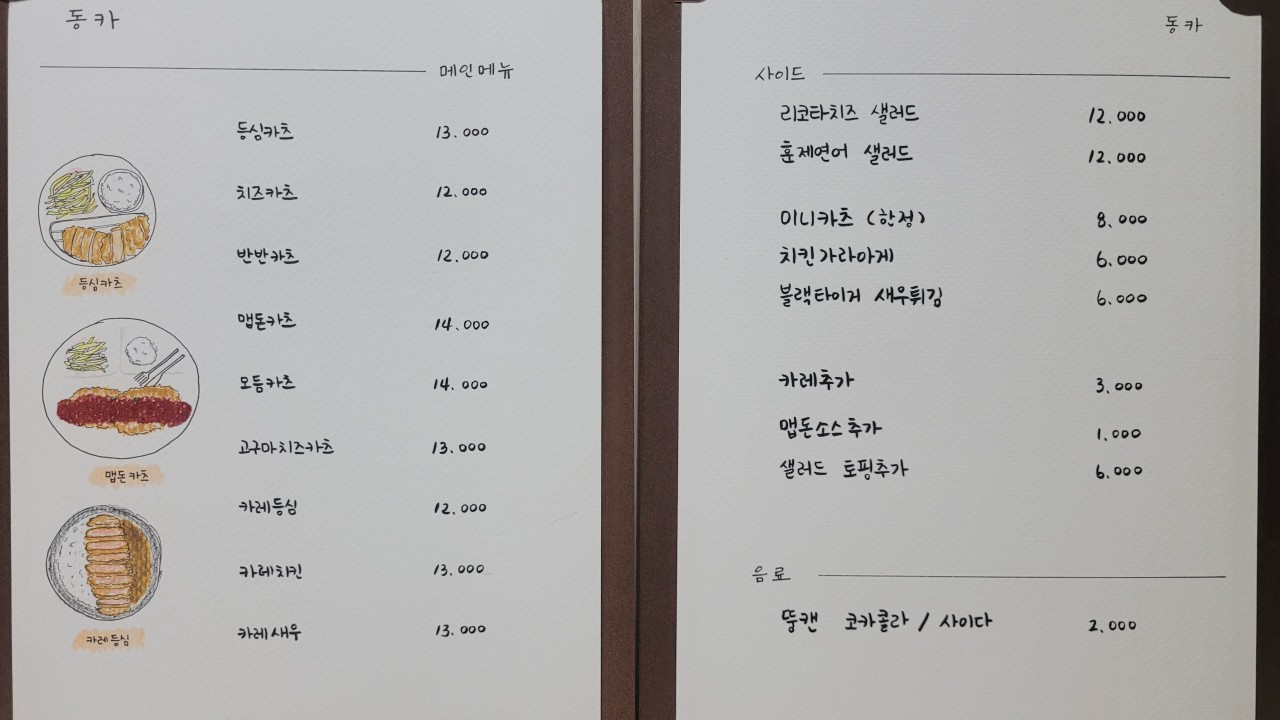 동카
메인메뉴
등심카츠 13.000
치즈카츠 12.000
반반카츠 12.000
맵돈카츠 14.000
모듬카츠 14.000
고구마치즈카츠 13.000
카레등심 12.000
카레치킨 13.000
카레새우 13.000
등심카츠
맵돈카츠
카레등심
동카
사이드
리코타치즈 샐러드 12.000
훈제연어 샐러드 12.000
미니카츠 (한정) 8.000
치킨가라아게 6.000
블랙타이거 새우튀김 6.000
카레추가 3.000
맵돈소스추가 1.000
샐러드 토핑추가 6.000
음료
뚱캔 코카콜라 / 사이다 2.000